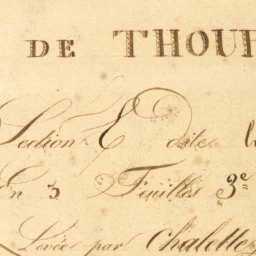 DE THOUR
Section E dite l
En 3 Feuilles 3e
Levée par Chalette